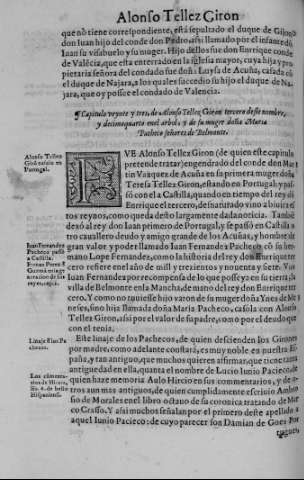 Alonso Tellez Giron
que no tiene correspondiente, està sepultado el duque de Gijon
don Iuan hijo del conde don Pedro, assi llamado por el infante dõ
Iuan su visabuelo y su muger. Hijo dellos fue don Enrrique conde
de Valẽcia, que esta enterrado en la iglesia mayor, cuya hija y pro
pietaria señora del condado fue doña Luysa de Acuña, casada cõ
el duque de Najara, a los quales sucedio su hijo el duque de Na-
jara, que oy possee el condado de Valencia.
¶ Capitulo veynte y tres, de Alonso Tellez Giron tercero deste nombre,
y decimoquarto en el arbol, y de su muger doña Maria
Pacheco señores de Belmonte.
Alonso Tellez
Girõ nacido en
Portugal.
FVE Alonso Tellez Giron (de quien este capitulo
pretende tratar) engendrado del conde don Mar
tin Vazquez de Acuña en su primera muger doña
Teresa Tellez Giron, estando en Portugal: y pas-
sò con el a Castilla, quando en tiempo del rey dõ
Enrrique el tercero, desnaturado vino a biuir a es
tos reynos, como queda desto largamente dada noticia. Tambiẽ
dexò al rey don Iuan primero de Portugal, y se passò en Castilla a
otro cauallero deudo y amigo grande de los Acuñas, y hombre de
gran valor y poder llamado Iuan Fernandez Pacheco cõ su her-
mano Lope Fernandez, como la historia del rey don Enrrique ter
cero refiere en el año de mil y trezientos y nouenta y siete. Este
Iuan Fernandez por recompensa de lo que possey a en su tierra, la
villa de Belmonte en la Mancha, de mano del rey don Enrrique ter
cero. Y como no tuuiesse hijo varon de su muger doña Ynes de Me
neses, sino hija llamada doña Maria Pacheco, casola con Alonso
Tellez Giron, assi por el valor de su padre, como por el deudo que
con el tenia.
Iuan Fernandez
Pacheco passò
a Castilla.
Linaje d los Pa
checos.
Este linaje de los Pachecos, de quien descienden los Girones
por madre, como adelante constarà, es muy noble en nuestra Es
paña, y tan antiguo, que muchos quieren affirmar, que tiene tanta
antiguedad en ella, quanta el nombre de Lucio Iunio Pacheco, de
quien haze memoria Aulo Hircio en sus commentarios, y de o-
tros aun mas antiguos, de quien cumplidamente escriuio Ambro
sio de Morales en el libro octauo de su coronica tratando de Mar
co Crasso. Y assi muchos señalan por el primero deste apellido a
aquel Iunio Pacheco: de cuyo parecer son Damian de Goes Por
tugues,
Los cõmenta-
rios de Hircio,
li. 6. de bello
Hispaniensi.